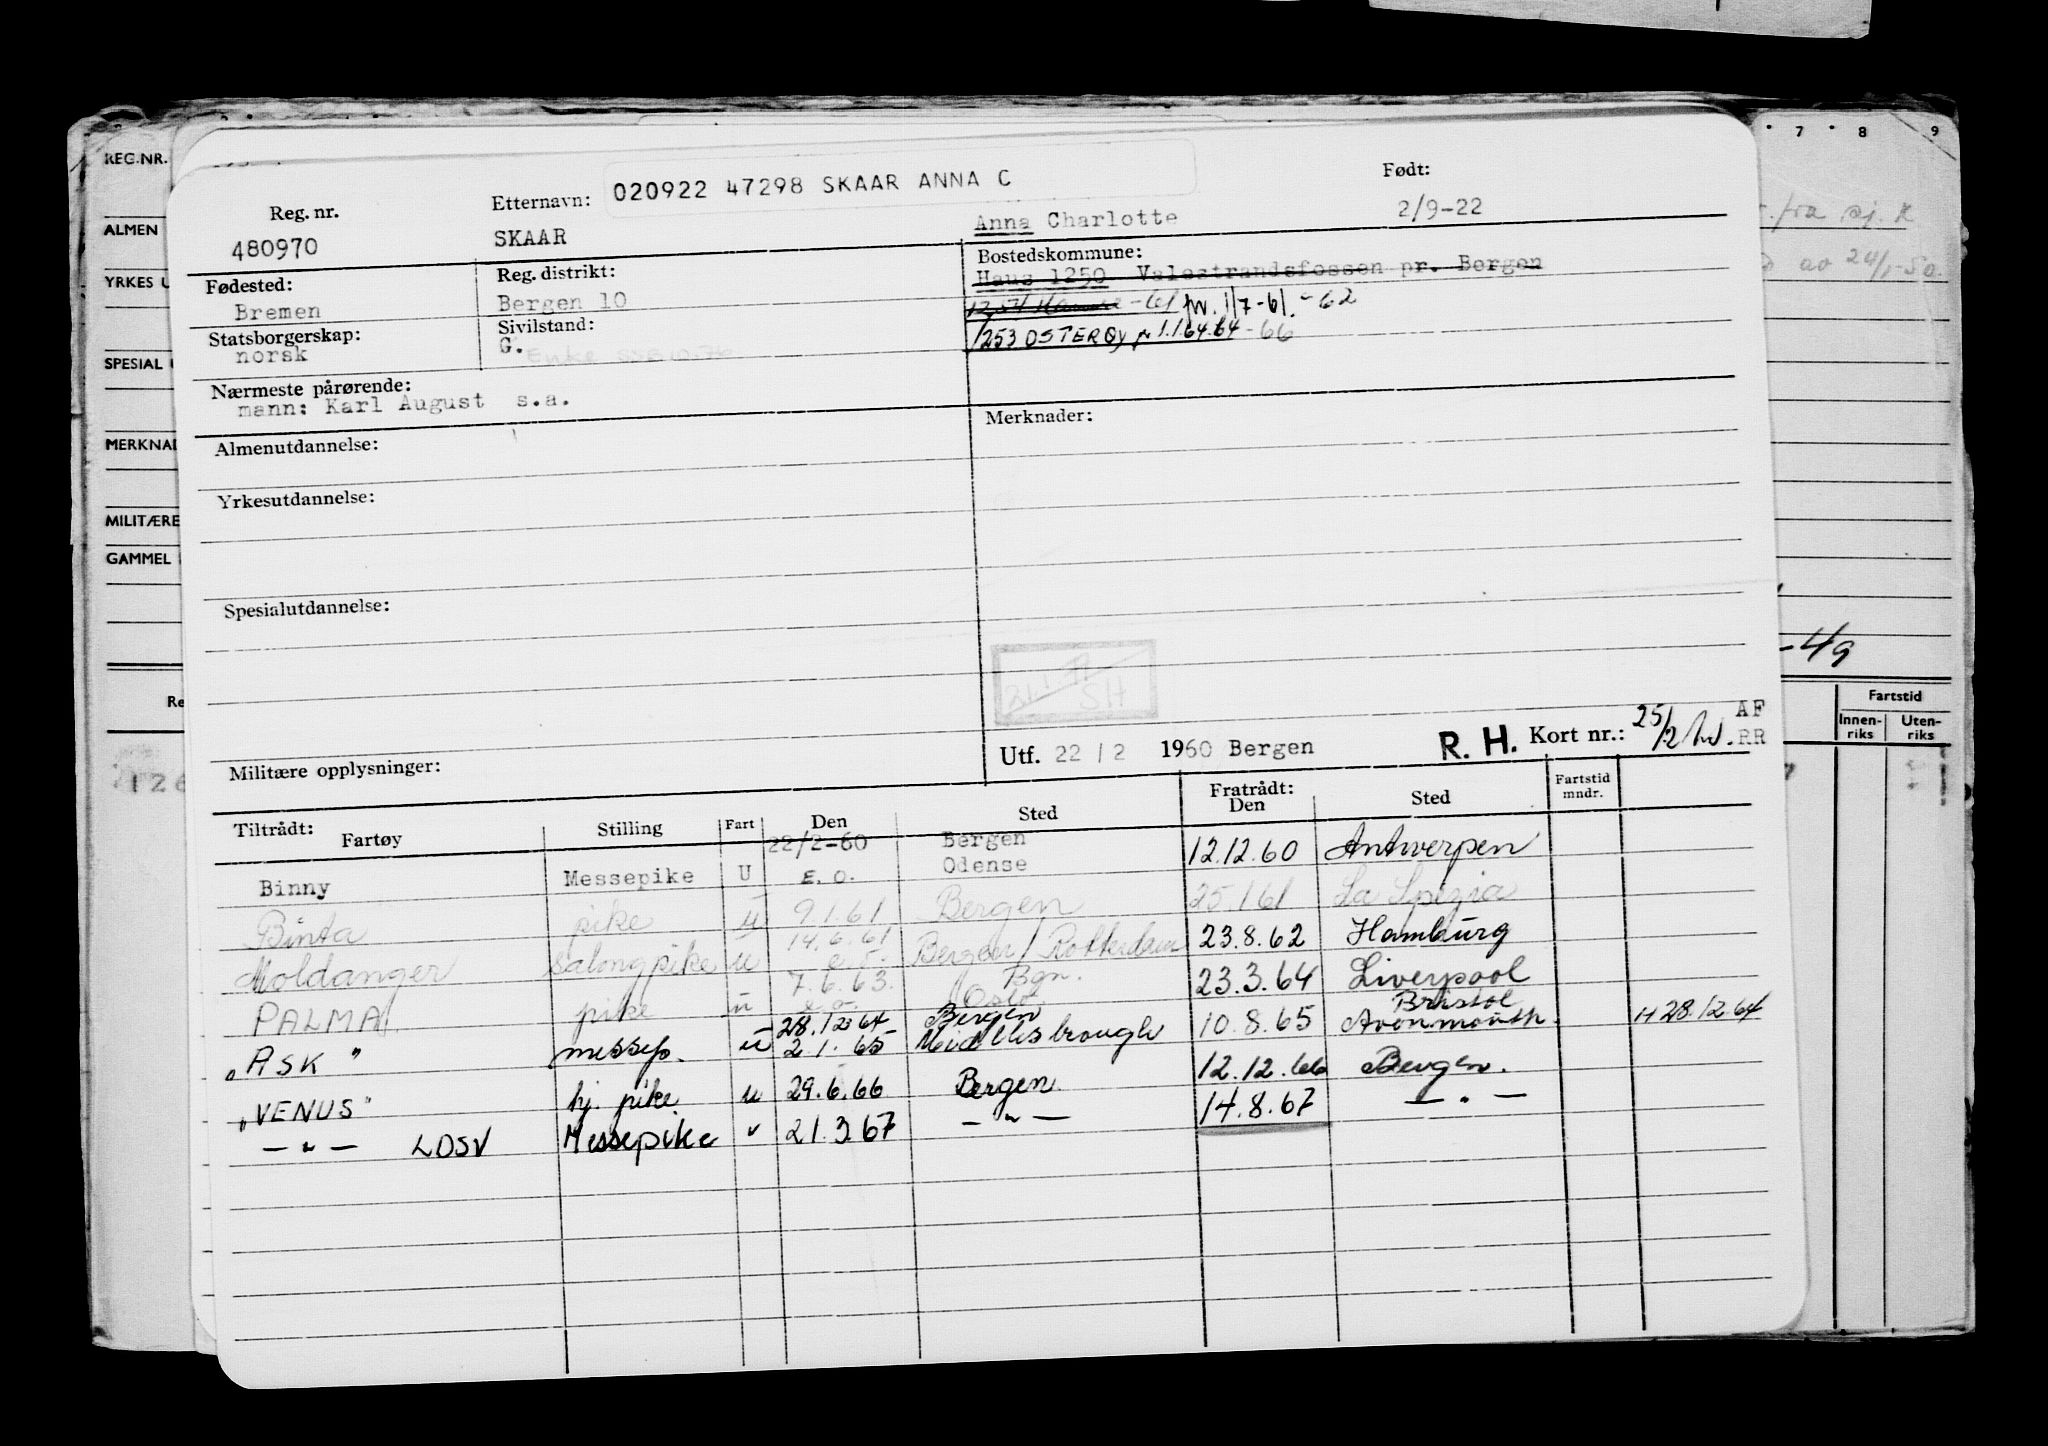 REG.NR.
ALMEN
YRKES U
SPESIAL U
MERKNAD
MILITÆRE
GAMMEL
Re
126
7 8 9
fra sj. R
av 24/1-50.
-49
Fartstid
Innen-riks Uten-riks
Reg. nr. Etternavn: 020922 47298 SKAAR ANNA C Født:
480970 SKAAR Anna Charlotte 2/9-22
Fødested: Reg. distrikt: Bostedskommune:
Bremen Bergen 10 Haus 1250 Valestrandsfossen pr. Bergen
-61 pr. 1/7-61.-62
Statsborgerskap: Sivilstand:
norsk G. Enke
1253 OSTERØY pr 1.1.64.64-66
Nærmeste pårørende:
mann: Karl August s.a.
Almenutdannelse: Merknader:
Yrkesutdannelse:
Spesialutdannelse:
SH
Militære opplysninger: Utf. 22/2 1960 Bergen R. H. Kort nr.: 25/2 AF RR
Tiltrådt: Fratrådt:
Fartøy Stilling Fart Den Sted Den Sted Fartstid mndr.
22/2-60 Bergen
Binny Messepike U E.O. Odense 12.12.60 Antwerpen
Binta pike u 9.1.61 Bergen 25.1.61 La Spezia
Moldanger salongpike u 14.6.61 e.o. Bergen/Rotterdam 23.8.62 Hamburg
PALMA pike u 7.6.63. e.o. Bgn. Oslo 23.3.64 Liverpool
28.12.64 Bergen Bristol
"ASK" messep. u 2.1.65 Middlesbrough 10.8.65 Avonmouth H 28.12.64
"VENUS" hj. pike u 29.6.66 Bergen 12.12.66 Bergen.
— " — LOSV Messepike v 21.3.67 — " — 14.8.67 — " —